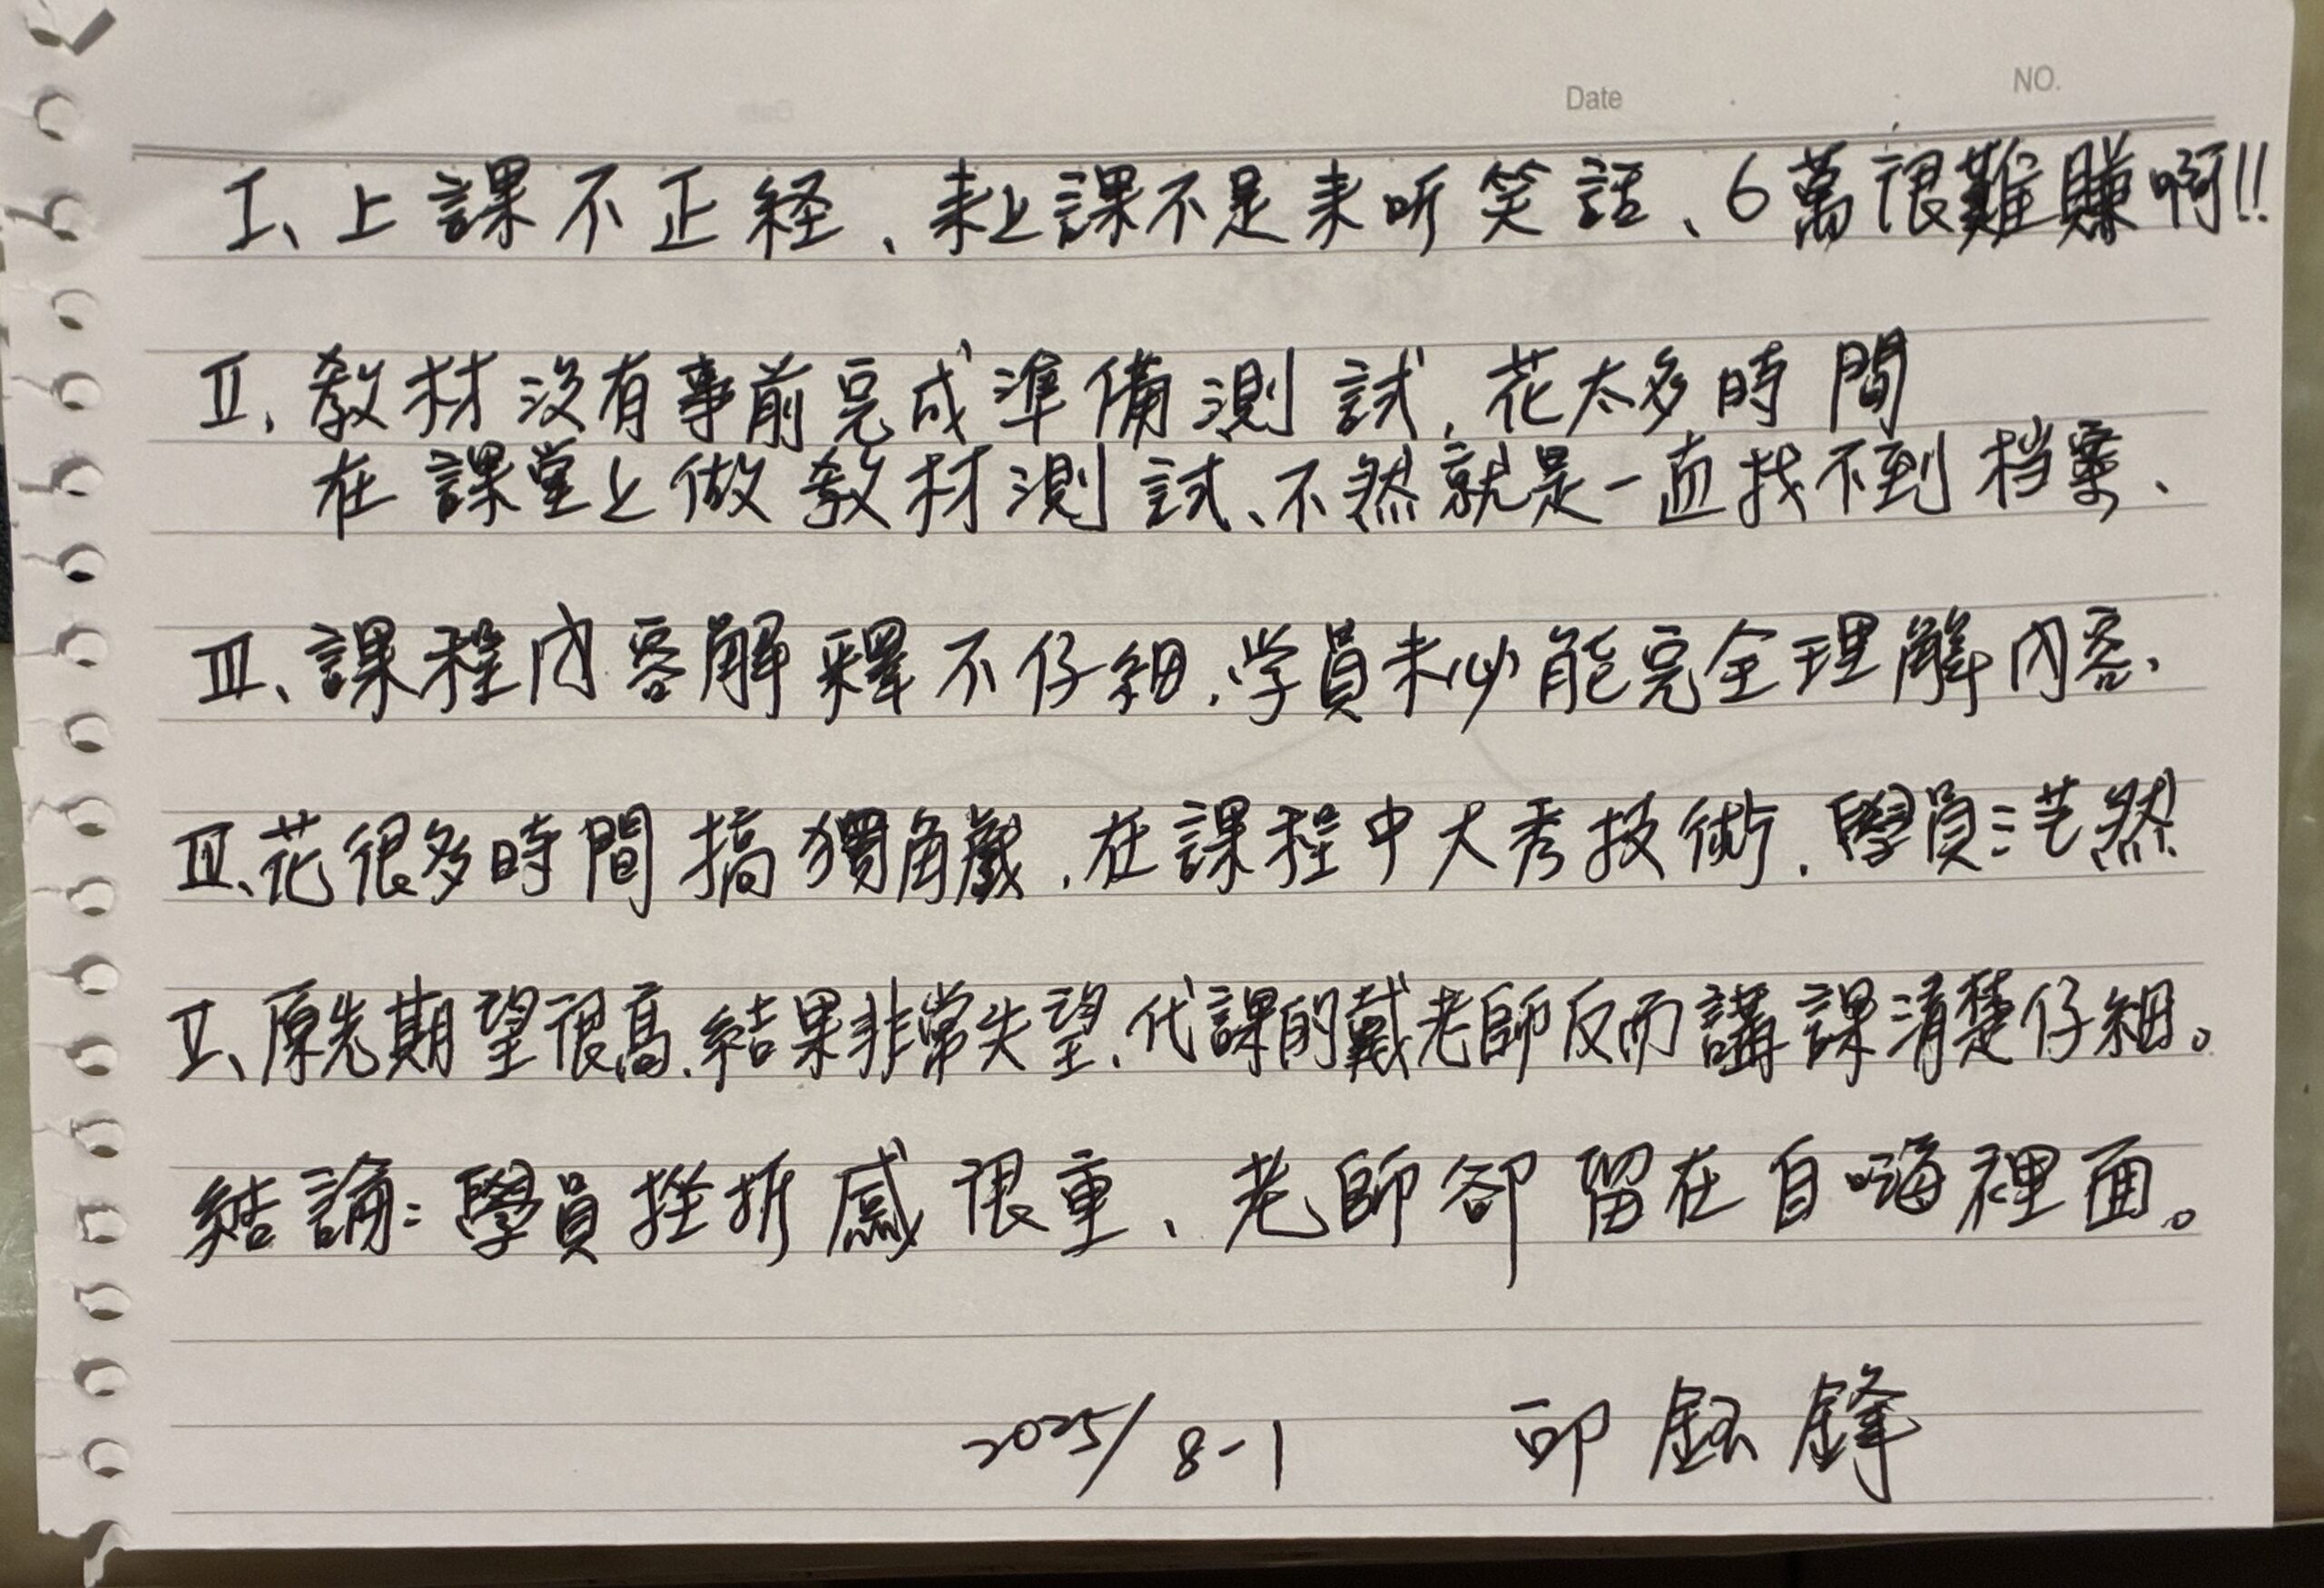 Date
NO.
I、上課不正経、来上課不是来听笑話、6萬很難賺啊!!
II、教材沒有事前完成準備測試，花太多時間
在課堂上做教材測試、不然就是一直找不到档案、
III、課程內容解釋不仔細，学員未必能完全理解內容、
IV、花很多時間搞獨角戲，在課程中大秀技術，學員茫然
V、原先期望很高，結果非常失望、代課的戴老師反而講課清楚仔細。
結論：學員挫折感很重、老師卻留在自嗨裡面。
2025/8-1 邱鈺鋒